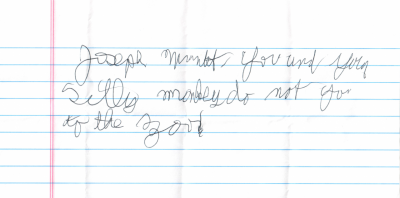 Joseph you and your
Silly monkey do not you
to the zoo!